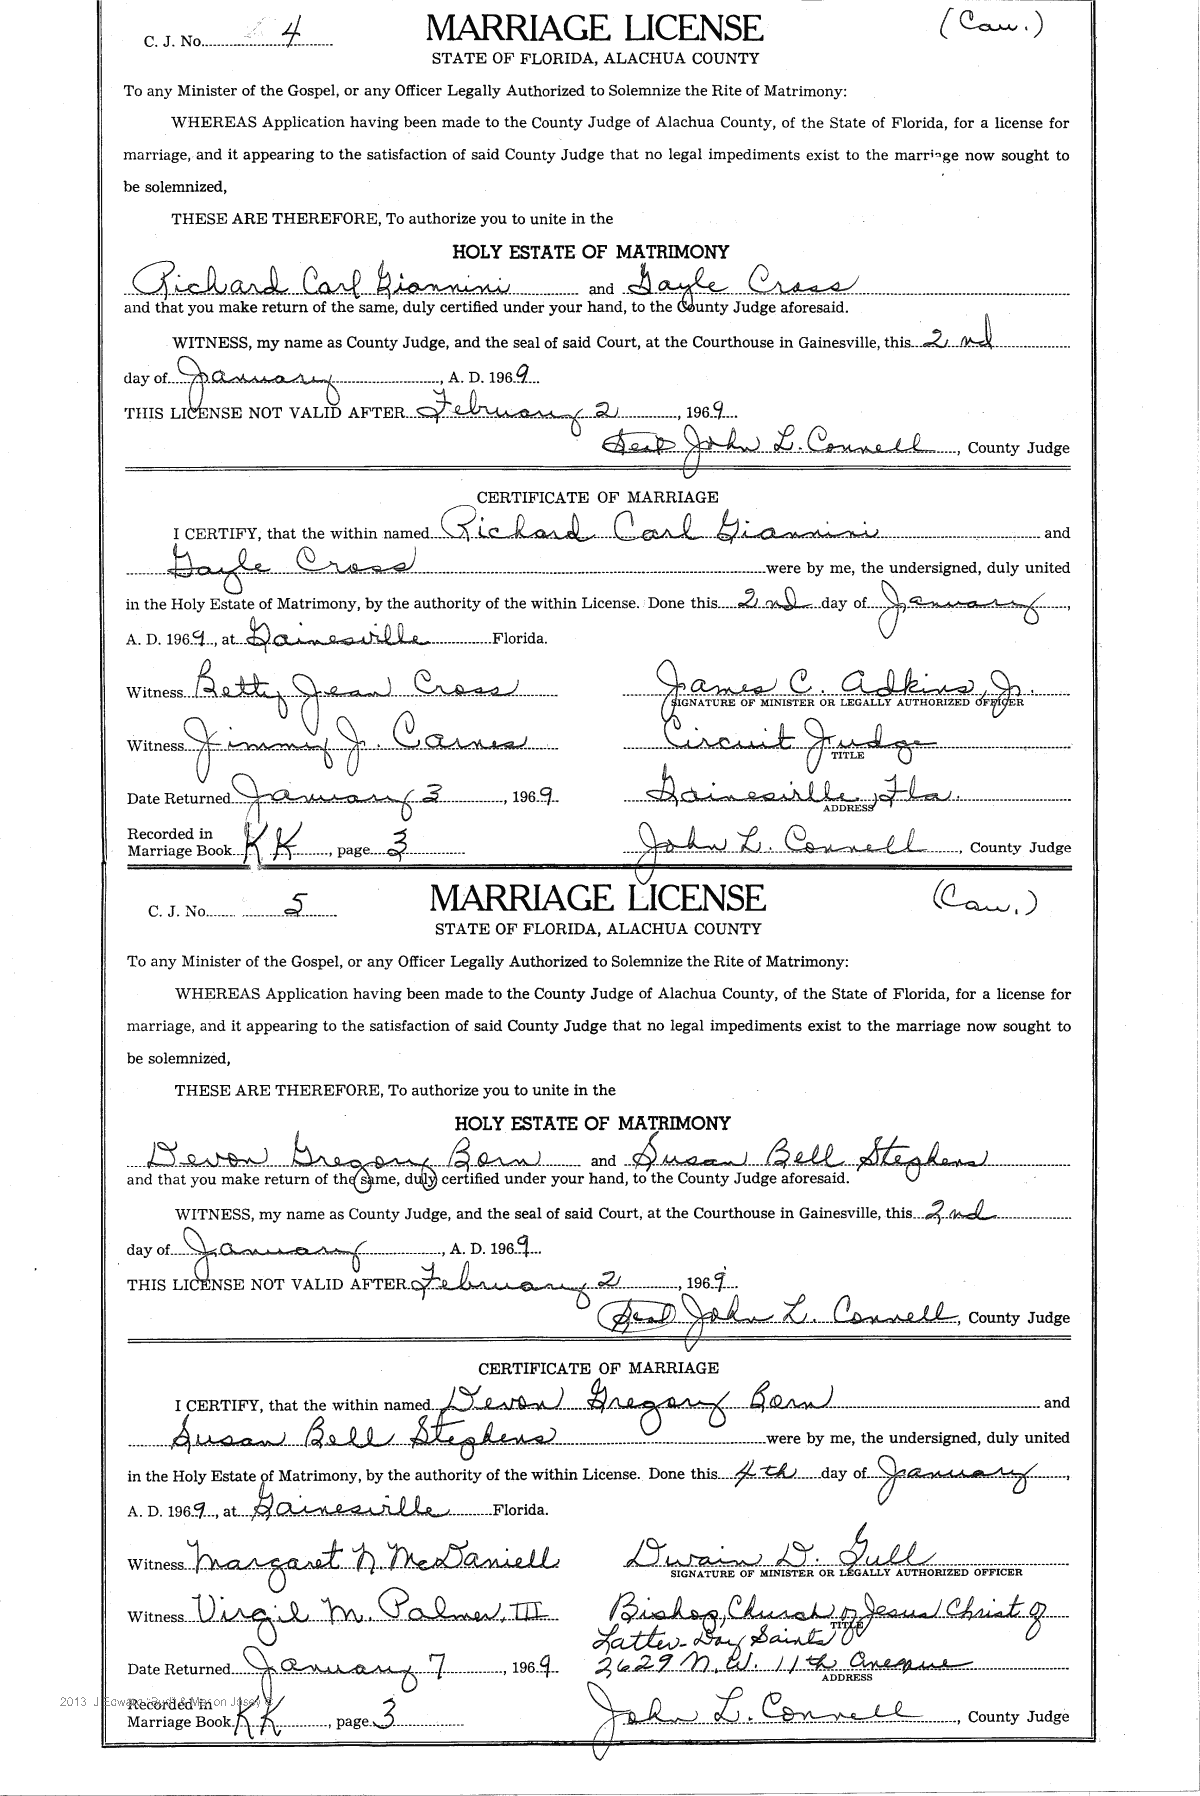 C. J. No. 4 MARRIAGE LICENSE (Cau.)
STATE OF FLORIDA, ALACHUA COUNTY
To any Minister of the Gospel, or any Officer Legally Authorized to Solemnize the Rite of Matrimony:
WHEREAS Application having been made to the County Judge of Alachua County, of the State of Florida, for a license for
marriage, and it appearing to the satisfaction of said County Judge that no legal impediments exist to the marriage now sought to
be solemnized,
THESE ARE THEREFORE, To authorize you to unite in the
HOLY ESTATE OF MATRIMONY
Richard Carl Giannini and Gayle Cross
and that you make return of the same, duly certified under your hand, to the County Judge aforesaid.
WITNESS, my name as County Judge, and the seal of said Court, at the Courthouse in Gainesville, this 2nd
day of January, A. D. 1969
THIS LICENSE NOT VALID AFTER February 2, 1969
Seal John L. Connell, County Judge
CERTIFICATE OF MARRIAGE
I CERTIFY, that the within named Richard Carl Giannini and
Gayle Cross were by me, the undersigned, duly united
in the Holy Estate of Matrimony, by the authority of the within License. Done this 2nd day of January,
A. D. 1969, at Gainesville Florida.
Witness Betty Jean Cross James C. Adkins, Jr.
SIGNATURE OF MINISTER OR LEGALLY AUTHORIZED OFFICER
Witness Jimmy J. Carnes Circuit Judge
TITLE
Date Returned January 3, 1969 Gainesville, Fla.
ADDRESS
Recorded in
Marriage Book KK, page 3 John L. Connell, County Judge
C. J. No. 5 MARRIAGE LICENSE (Cau.)
STATE OF FLORIDA, ALACHUA COUNTY
To any Minister of the Gospel, or any Officer Legally Authorized to Solemnize the Rite of Matrimony:
WHEREAS Application having been made to the County Judge of Alachua County, of the State of Florida, for a license for
marriage, and it appearing to the satisfaction of said County Judge that no legal impediments exist to the marriage now sought to
be solemnized,
THESE ARE THEREFORE, To authorize you to unite in the
HOLY ESTATE OF MATRIMONY
Devon Gregory Born and Susan Bell Stephens
and that you make return of the same, duly certified under your hand, to the County Judge aforesaid.
WITNESS, my name as County Judge, and the seal of said Court, at the Courthouse in Gainesville, this 2nd
day of January, A. D. 1969
THIS LICENSE NOT VALID AFTER February 2, 1969
Seal John L. Connell, County Judge
CERTIFICATE OF MARRIAGE
I CERTIFY, that the within named Devon Gregory Born and
Susan Bell Stephens were by me, the undersigned, duly united
in the Holy Estate of Matrimony, by the authority of the within License. Done this 4th day of January,
A. D. 1969, at Gainesville Florida.
Witness Margaret N McDaniell Dwain D. Gull
SIGNATURE OF MINISTER OR LEGALLY AUTHORIZED OFFICER
Witness Virgil M. Palmer, III Bishop, Church of Jesus Christ of
TITLE
Latter-Day Saints
Date Returned January 7, 1969 2629 N.W. 11th Avenue
ADDRESS
Recorded in
Marriage Book KK, page 3 John L. Connell, County Judge
2013